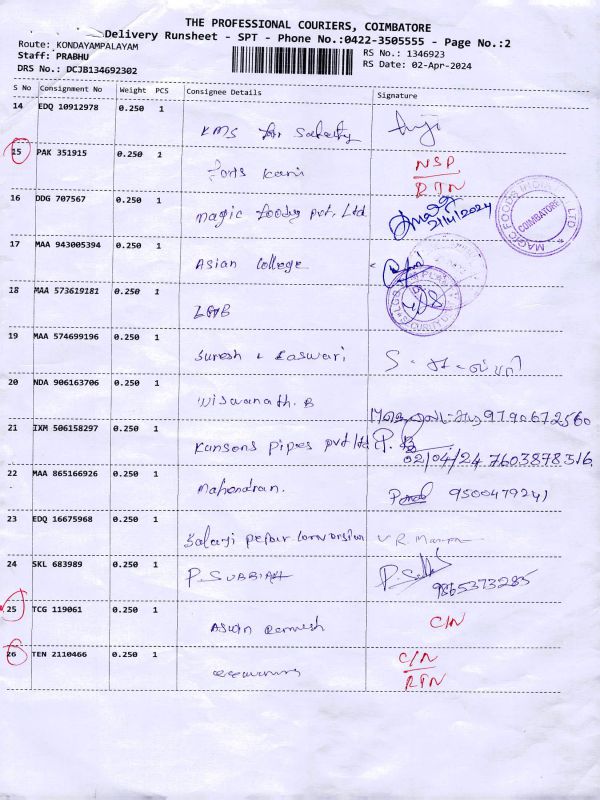 THE PROFESSIONAL COURIERS, COIMBATORE
Delivery Runsheet - SPT - Phone No.:0422-3505555 - Page No.:2
Route: KONDAYAMPALAYAM
Staff: PRABHU
DRS No.: DCJB134692302
RS No.: 1346923
RS Date: 02-Apr-2024
S No Consignment No Weight PCS Consignee Details Signature
14 EDQ 10912978 0.250 1
KMS
15 PAK 351915 0.250 1 NSP
RTN
16 DDG 707567 0.250 1
magic foods pvt. Ltd 2/4/2024
MAGIC FOODS INDIA LTD
COIMBATORE
17 MAA 943005394 0.250 1
Asian College
18 MAA 573619181 0.250 1
LGB
19 MAA 574699196 0.250 1
Suresh & Easwari
20 NDA 906163706 0.250 1
Wiswanath. B 9790672560
21 IXM 506158297 0.250 1
Kansons pipes pvt ltd 02/04/24 7603878516
22 MAA 865166926 0.250 1
Mahendran. 9500479241
23 EDQ 16675968 0.250 1
Balaji
24 SKL 683989 0.250 1
P. SUBBIAH 9865373285
25 TCG 119061 0.250 1
C/N
26 TEN 2110466 0.250 1 C/N
RTN